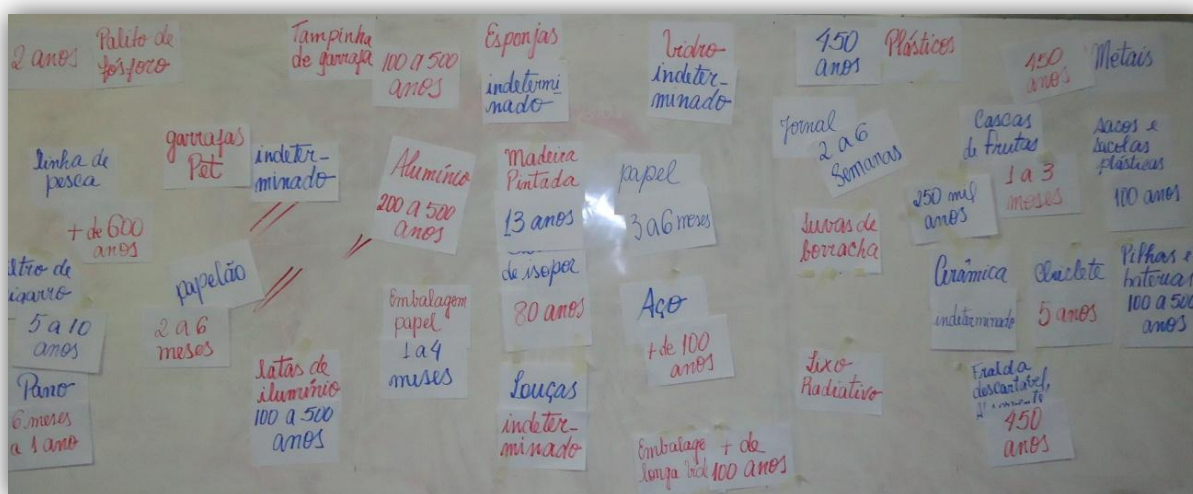 2 anos
Palito de
fósforo
Tampinha
de garrafa
100 a 500
anos
Esponjas
indetermi
nado
Vidro
indeter-
minado
450
anos
Plásticos
450
anos
Metais
linha de
pesca
+ de 600
anos
garrafas
Pet
indeter-
minado
Alumínio
200 a 500
anos
Madeira
Pintada
13 anos
papel
3 a 6 meses
Jornal
2 a 6
Semanas
Cascas
de frutas
1 a 3
meses
250 mil
anos
sacos e
sacolas
plásticas
100 anos
ltro de
igarro
5 a 10
anos
papelão
2 a 6
meses
Embalagem
papel
1 a 4
meses
de isopor
80 anos
Aço
+ de 100
anos
Luvas de
borracha
Cerâmica
indeterminado
Chiclete
5 anos
Pilhas e
baterias
100 a 500
anos
Pano
6 meses
a 1 ano
latas de
ilumínio
100 a 500
anos
Louças
indeter-
minado
Embalage
longa vid
+ de
100 anos
Lixo
Radiativo
Fralda
descartável,
450
anos